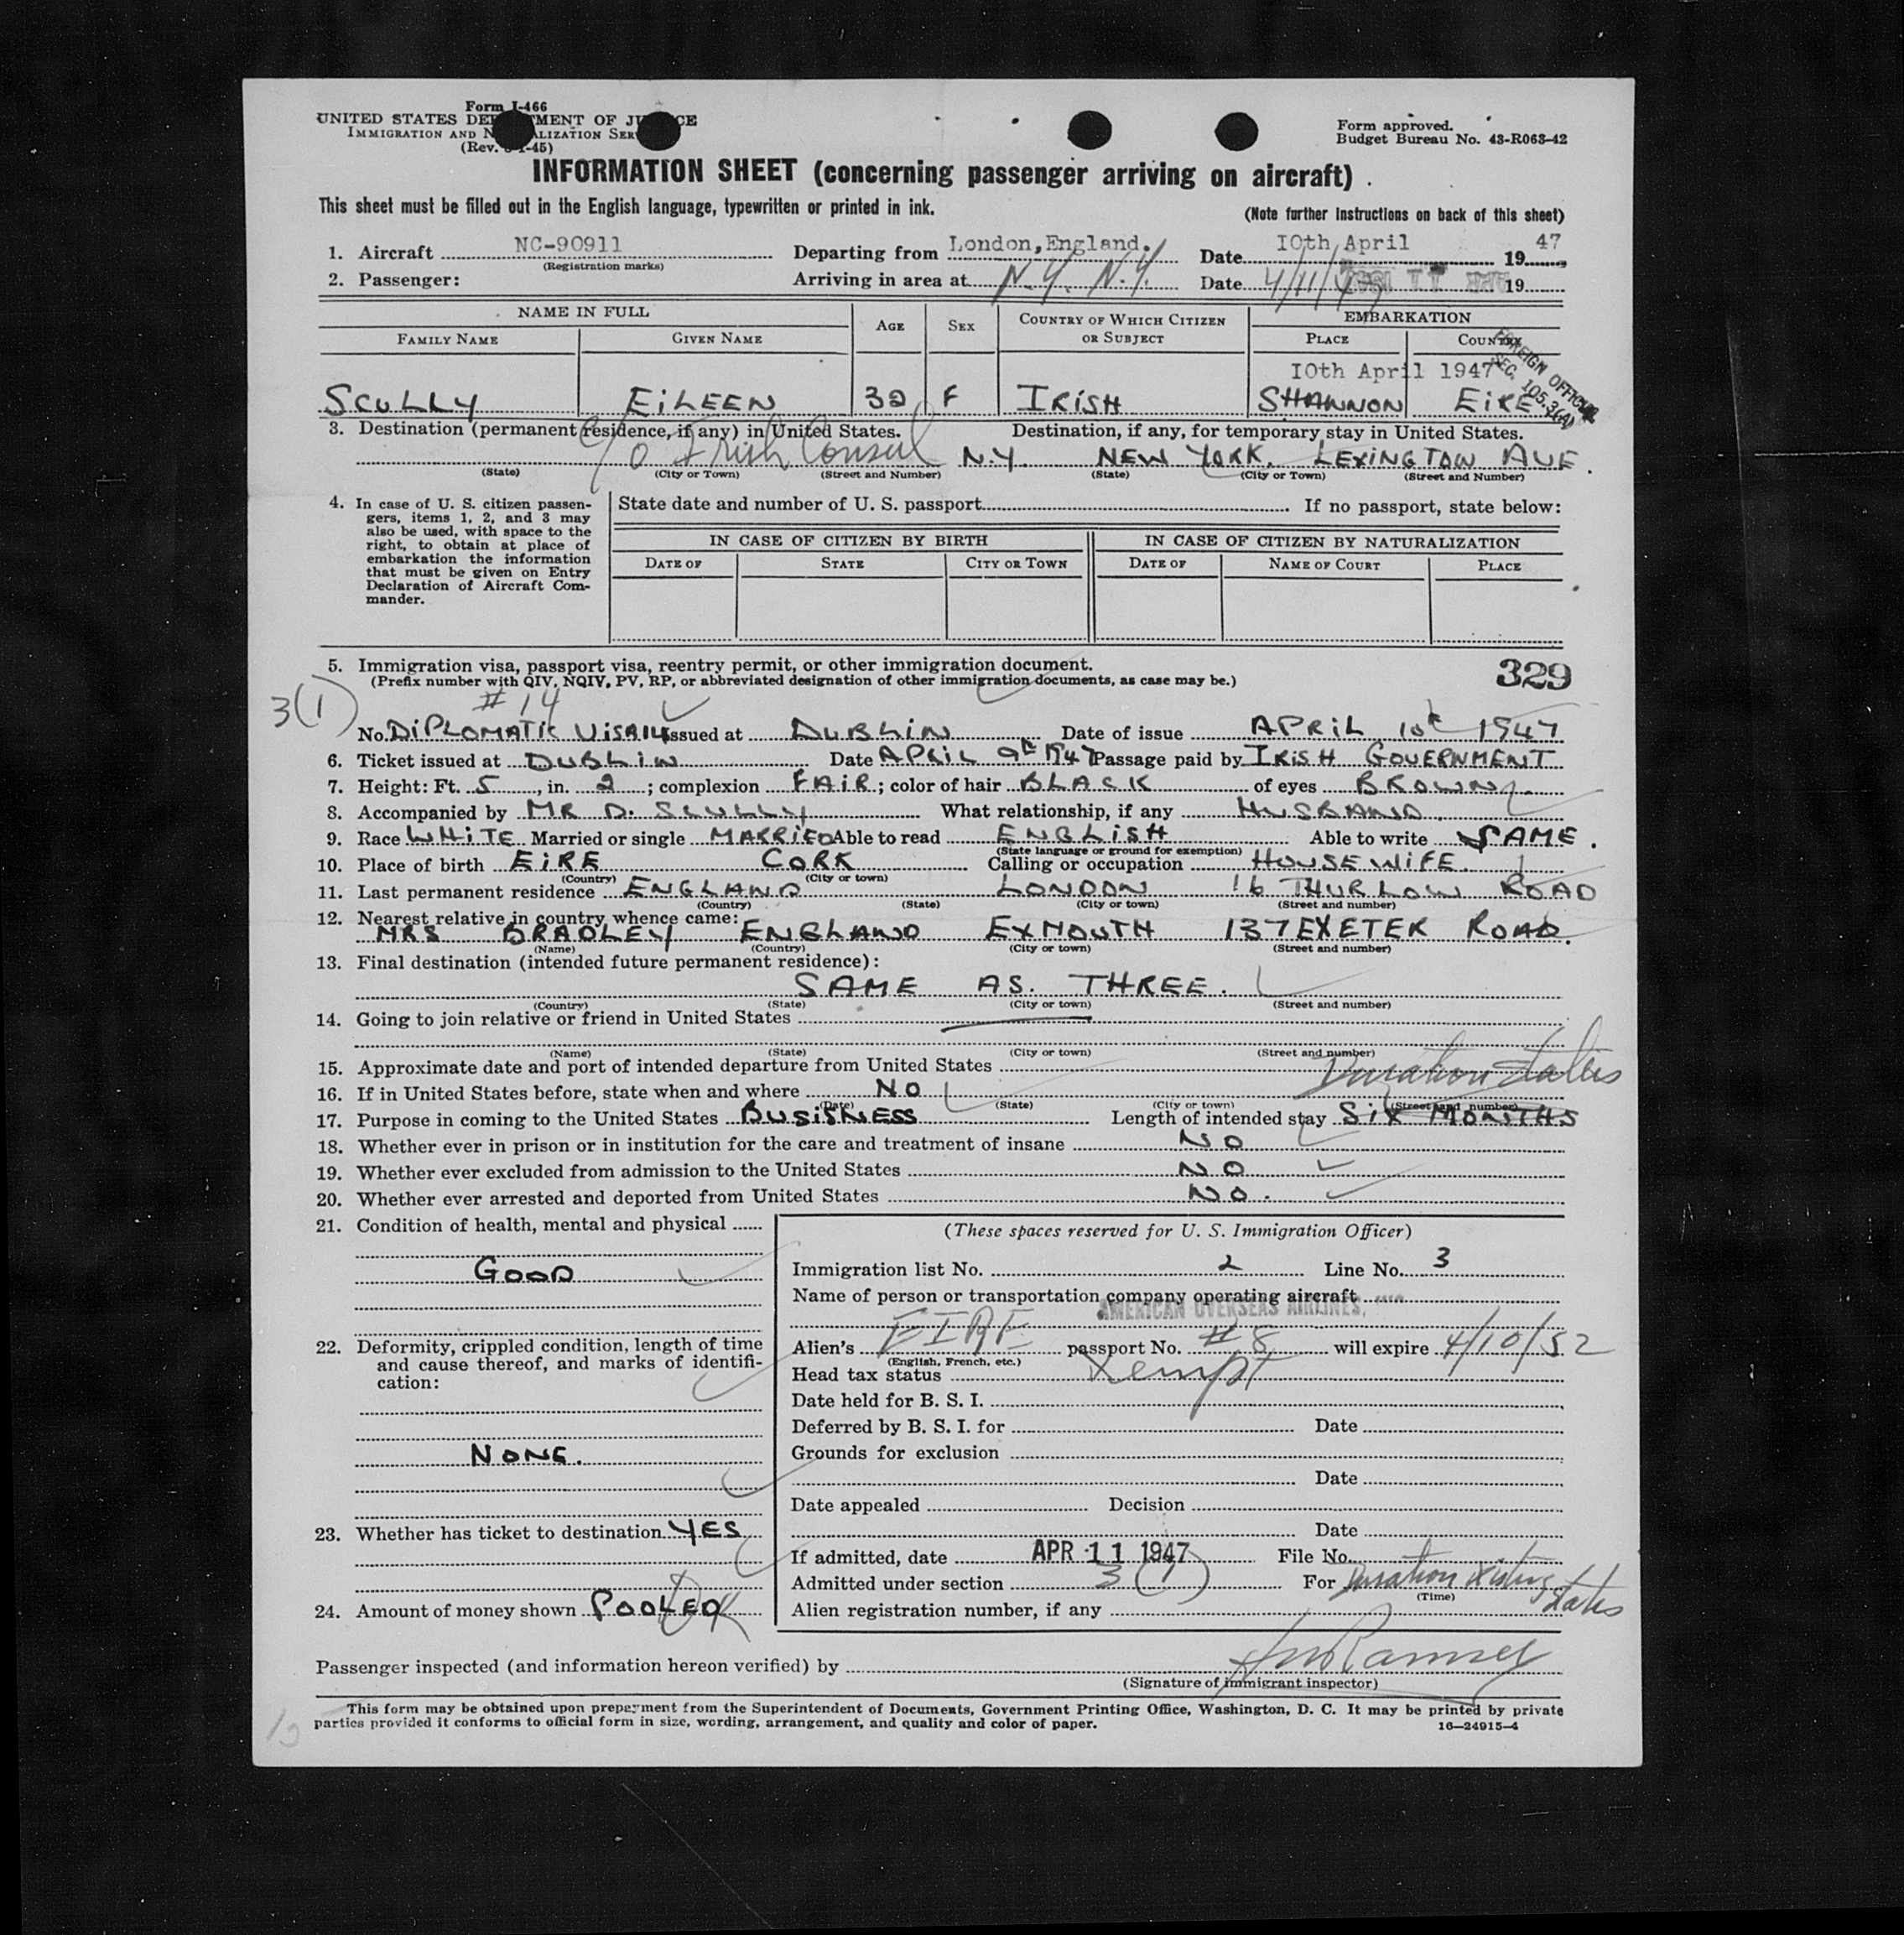 Form I-466
UNITED STATES DEPARTMENT OF JUSTICE
IMMIGRATION AND NATURALIZATION SERVICE
(Rev. -1-45)
Form approved.
Budget Bureau No. 43-R063-42
INFORMATION SHEET (concerning passenger arriving on aircraft)
This sheet must be filled out in the English language, typewritten or printed in ink.
(Note further instructions on back of this sheet)
1. Aircraft NC-90911 Departing from London, England. Date 10th April 1947
(Registration marks)
2. Passenger: Arriving in area at N.Y. N.Y. Date 4/11/47 19
NAME IN FULL AGE SEX COUNTRY OF WHICH CITIZEN OR SUBJECT EMBARKATION
FAMILY NAME GIVEN NAME PLACE COUNTRY
10th April 1947
FOREIGN OFFICIAL
SEC. 105.3(A)
SCULLY EILEEN F IRISH SHANNON EIRE
3. Destination (permanent residence, if any) in United States. Destination, if any, for temporary stay in United States.
c/o Irish Consul N.Y. NEW YORK. LEXINGTON AVE.
(State) (City or Town) (Street and Number) (State) (City or Town) (Street and Number)
4. In case of U. S. citizen passengers, items 1, 2, and 3 may also be used, with space to the right, to obtain at place of embarkation the information that must be given on Entry Declaration of Aircraft Commander.
State date and number of U. S. passport If no passport, state below:
IN CASE OF CITIZEN BY BIRTH IN CASE OF CITIZEN BY NATURALIZATION
DATE OF STATE CITY OR TOWN DATE OF NAME OF COURT PLACE
5. Immigration visa, passport visa, reentry permit, or other immigration document.
329
(Prefix number with QIV, NQIV, PV, RP, or abbreviated designation of other immigration documents, as case may be.)
3(1) #14
No. DIPLOMATIC VISA 14 Issued at DUBLIN Date of issue APRIL 10th 1947
6. Ticket issued at DUBLIN Date APRIL 9th 1947 Passage paid by IRISH GOVERNMENT
7. Height: Ft. 5, in. 2; complexion FAIR; color of hair BLACK of eyes BROWN
8. Accompanied by MR D. SCULLY What relationship, if any HUSBAND.
9. Race WHITE Married or single MARRIED Able to read ENGLISH Able to write SAME.
(State language or ground for exemption)
10. Place of birth EIRE CORK Calling or occupation HOUSEWIFE.
(Country) (City or town)
11. Last permanent residence ENGLAND LONDON 16 THURLOW ROAD
(Country) (State) (City or town) (Street and number)
12. Nearest relative in country whence came:
MRS BRADLEY ENGLAND EXMOUTH 137 EXETER ROAD.
(Name) (Country) (City or town) (Street and number)
13. Final destination (intended future permanent residence):
SAME AS. THREE.
(Country) (State) (City or town) (Street and number)
14. Going to join relative or friend in United States
(Name) (State) (City or town) (Street and number)
15. Approximate date and port of intended departure from United States Duration Status
16. If in United States before, state when and where NO
(Date) (State) (City or town) (Street and number)
17. Purpose in coming to the United States BUSINESS Length of intended stay SIX MONTHS
18. Whether ever in prison or in institution for the care and treatment of insane NO
19. Whether ever excluded from admission to the United States NO
20. Whether ever arrested and deported from United States NO.
21. Condition of health, mental and physical
GOOD
22. Deformity, crippled condition, length of time and cause thereof, and marks of identification:
NONE.
23. Whether has ticket to destination YES
24. Amount of money shown POOLED OK
(These spaces reserved for U. S. Immigration Officer)
Immigration list No. 2 Line No. 3
Name of person or transportation company operating aircraft
AMERICAN OVERSEAS AIRLINES,
Alien's EIRE passport No. #8 will expire 4/10/52
(English, French, etc.)
Head tax status Xempt
Date held for B. S. I.
Deferred by B. S. I. for Date
Grounds for exclusion
Date
Date appealed Decision
Date
If admitted, date APR 11 1947 File No.
Admitted under section 3(1) For Duration Xisting Status
(Time)
Alien registration number, if any
Passenger inspected (and information hereon verified) by Ramsey
(Signature of immigrant inspector)
This form may be obtained upon prepayment from the Superintendent of Documents, Government Printing Office, Washington, D. C. It may be printed by private
parties provided it conforms to official form in size, wording, arrangement, and quality and color of paper. 16—24915-4